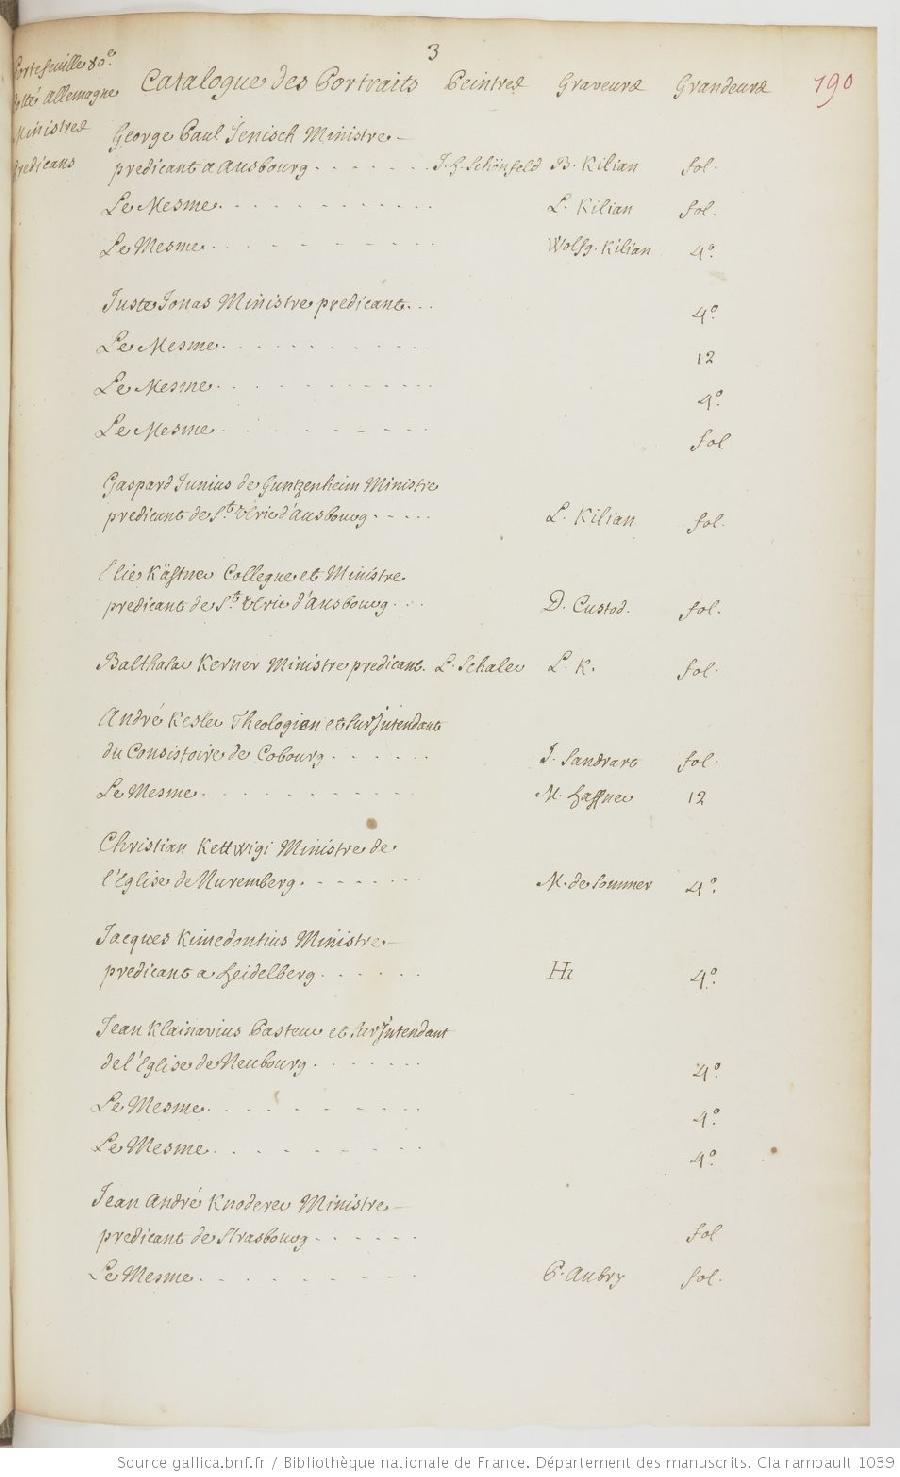 3
Portefeuille 80e.
Cotté Allemagne
Ministres
predicans
Catalogue des Portraits Peintres Graveurs Grandeurs 190
George Paul Jenisch Ministre
predicant a Ausbourg . . . . . . . J. H. Schönfeld B. Kilian fol.
Le Mesme . . . . . . . . . . . L. Kilian fol.
Le Mesme . . . . . . . . . . . Wolfg. Kilian 4º.
Juste Jonas Ministre predicant . . . 4º.
Le Mesme . . . . . . . . . . 12
Le Mesme . . . . . . . . . . 4º.
Le Mesme . . . . . . . . . . fol
Gaspard Junius de Guntzenheim Ministre
predicant de St. Ulric d'Ausbourg . . . . L. Kilian fol.
Elie Kästner Collegue et Ministre
predicant de St. Ulric d'Ausbourg . . . D. Custod. fol.
Balthasar Kerner Ministre predicant. L. Schaler L. K. fol.
André Kesler Theologien et surJntendant
du Consistoire de Cobourg . . . . . . J. Sandrart fol.
Le Mesme . . . . . . . . . . M. Haffner 12
Christian Kettwigi Ministre de
l'Eglise de Nuremberg . . . . . . M. de Sommer 4º.
Jacques Kimedontius Ministre
predicant a Heidelberg . . . . . . 4º.
Jean Klainavius Pasteur et surJntendant
de l'Eglise de Neubourg . . . . . . 4º.
Le Mesme . . . . . . . . . . 4º.
Le Mesme . . . . . . . . . . 4º.
Jean André Knoderer Ministre
predicant de Strasbourg . . . . . . fol
Le Mesme . . . . . . . . . . P. Aubry fol.
Source gallica.bnf.fr / Bibliothèque nationale de France. Département des manuscrits. Clairambault 1039